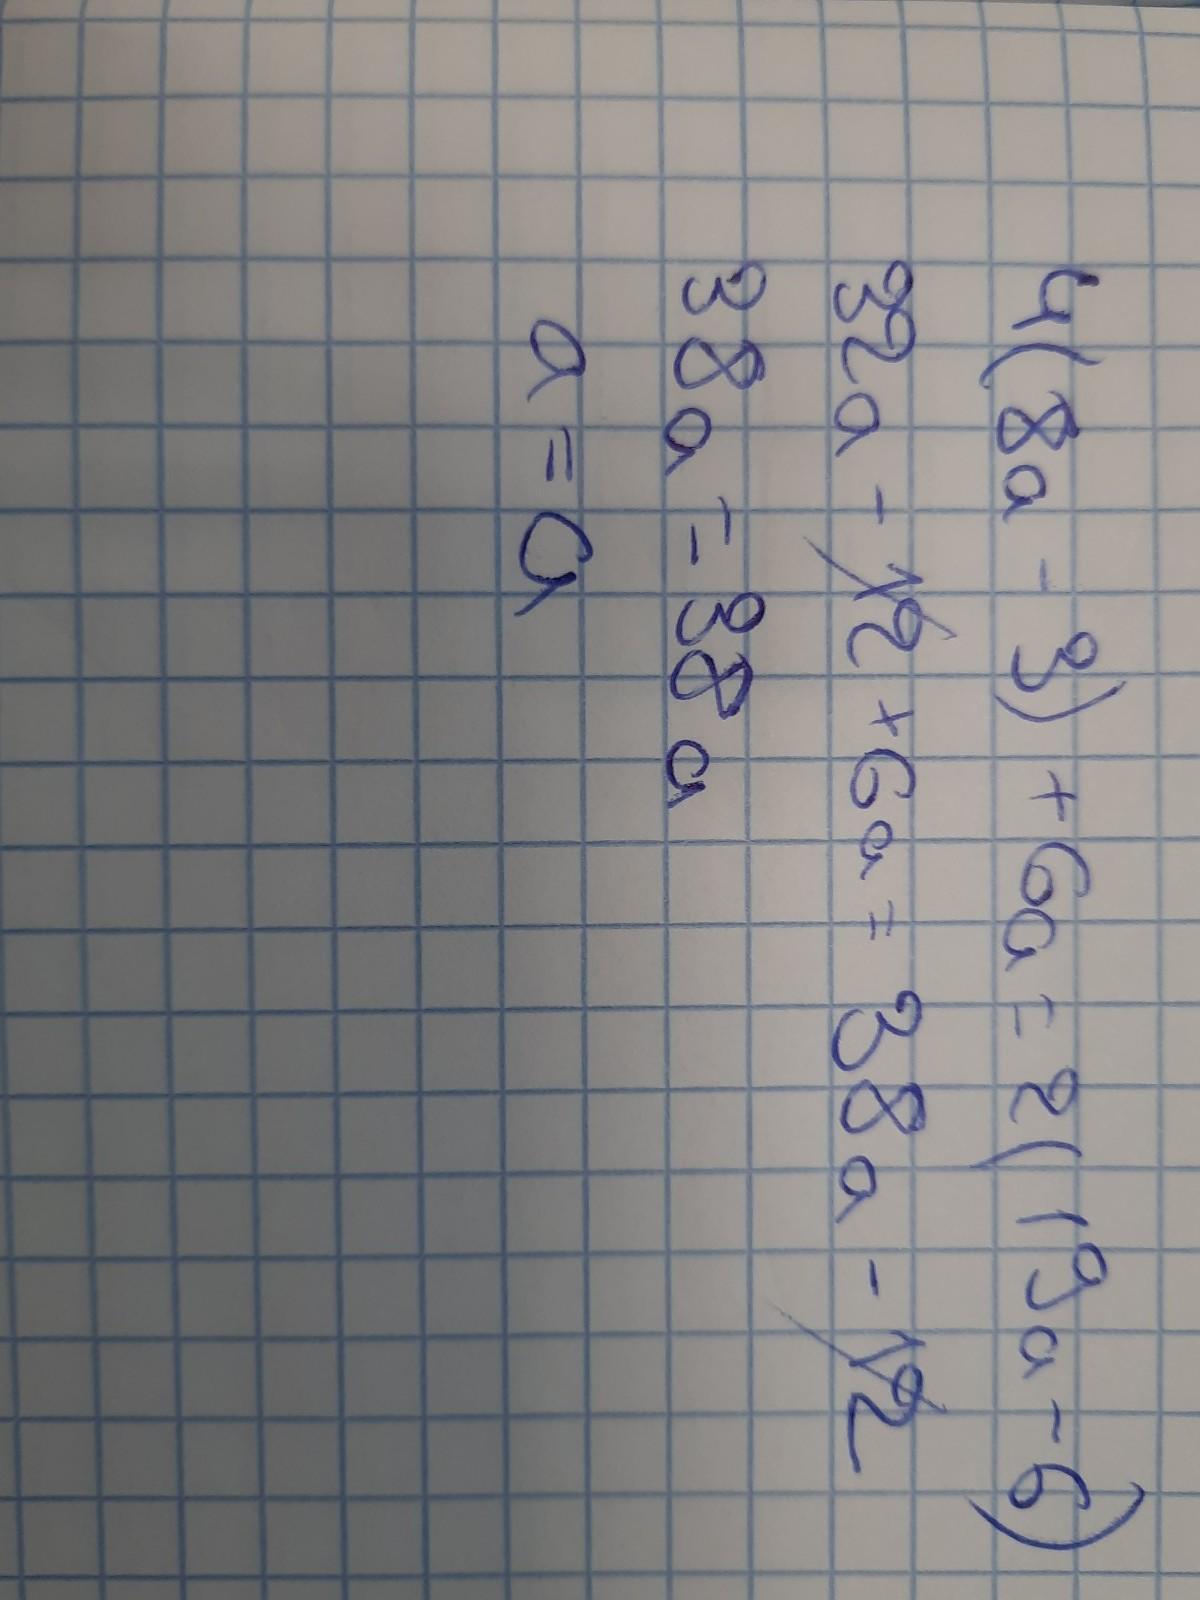 4(8a - 3) + 6a = 2(19a - 6)
32a - 12 + 6a = 38a - 12
38a = 38a
a = a